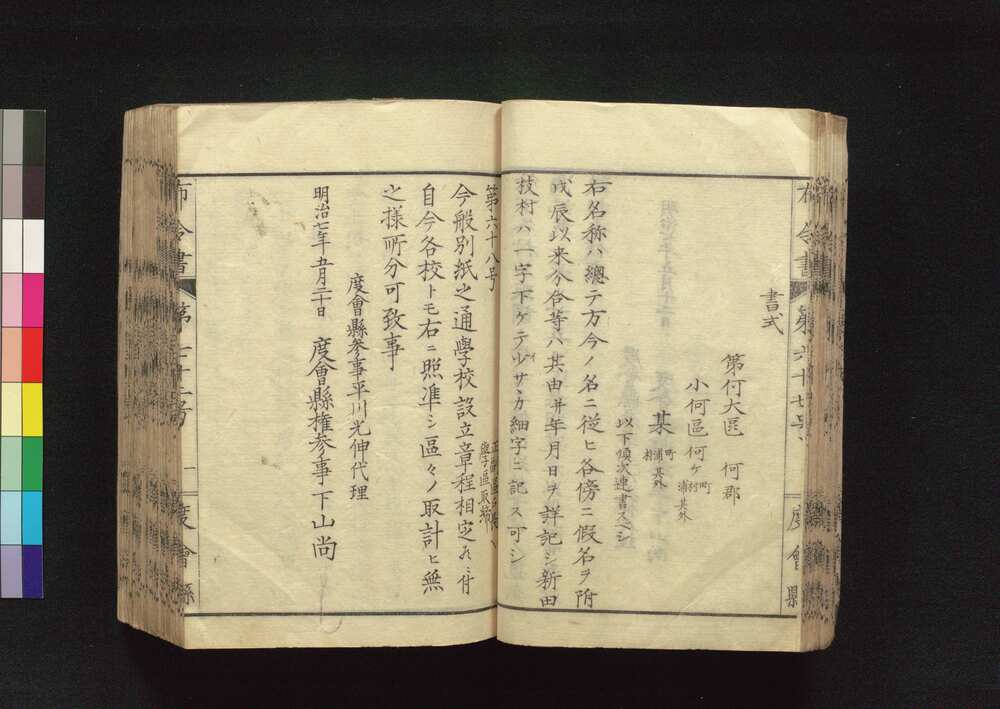 布令書 第六十七号 度會縣
書式
第何大區 何郡
小何區 何ヶ 町村浦其外
某 町村浦其外
以下順次連書スヘシ
右名称ハ總テ方今ノ名ニ従ヒ各傍ニ假名ヲ附
戊辰以来分合等ハ其由并年月日ヲ詳記シ新田
枝村ハ一字下ケテ方細字ニ記ス可シ
第六十八号
學區取締
今般別紙之通學校設立章程相定候ニ付
自今各校トモ右ニ照準シ區々ノ取計ヒ無
之様所分可致事
度會縣参事平川光伸代理
明治七年五月二十日 度會縣権参事下山尚
布令書 第 号 度會縣